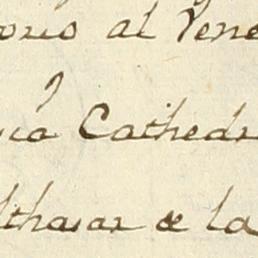 al Vene
Cathedr
lthasar de la